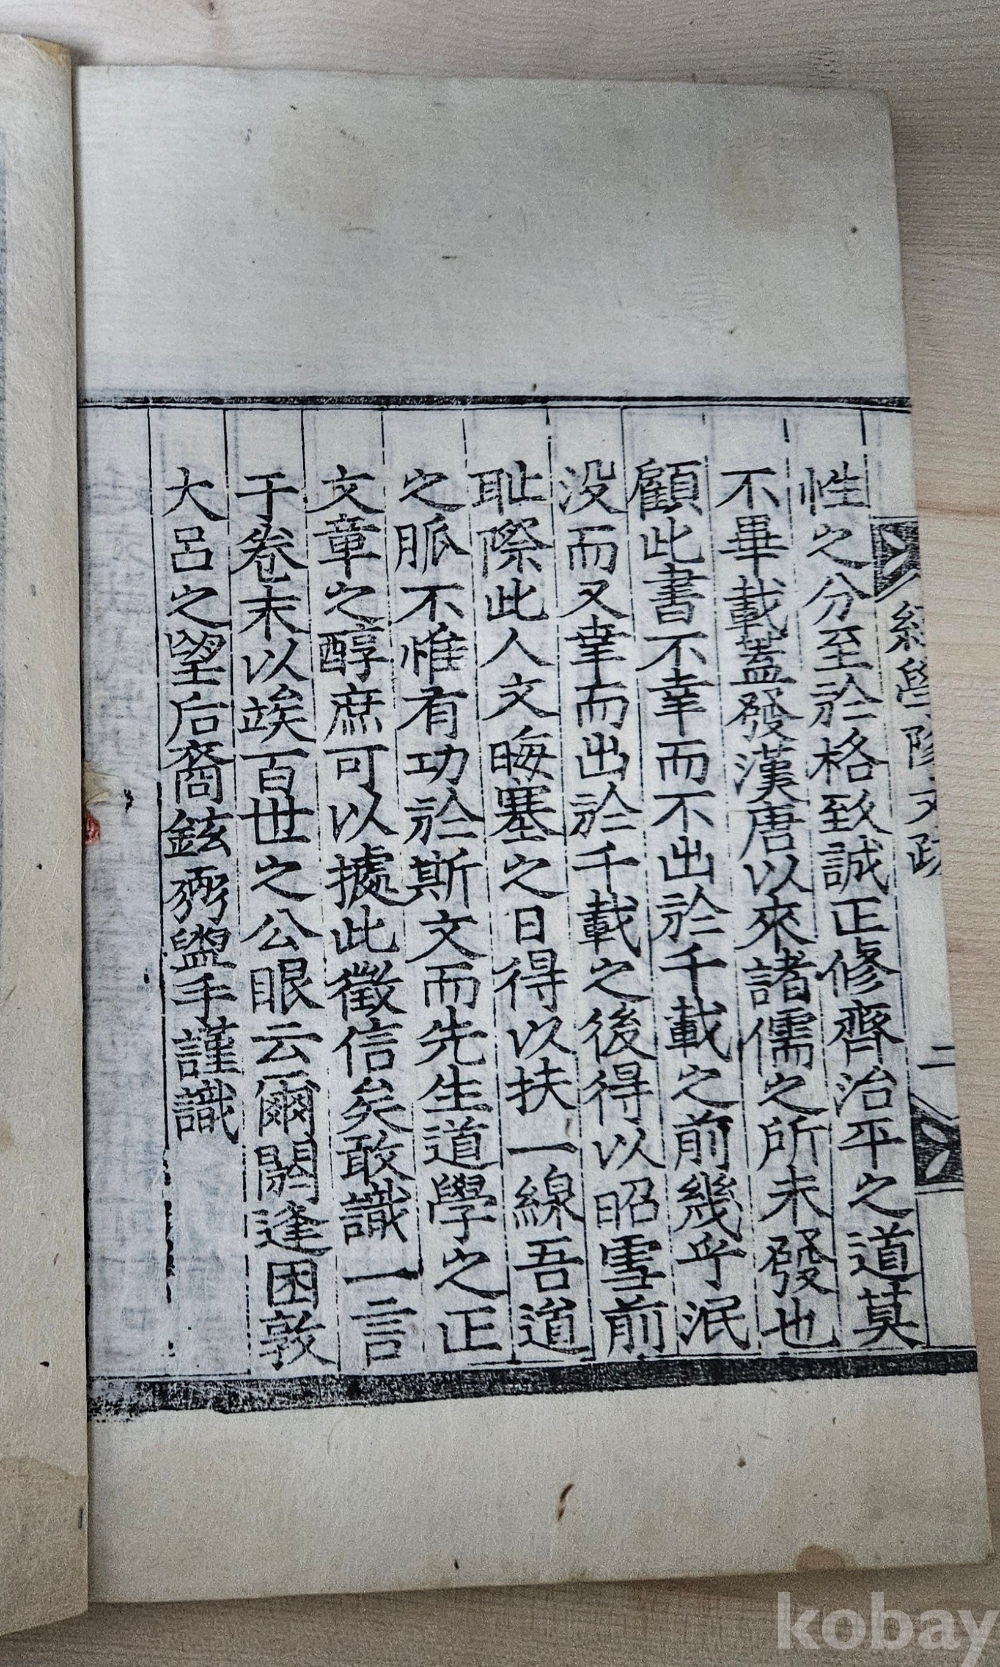 性之分至於格致誠正修齊治平之道莫
不畢載蓋發漢唐以來諸儒之所未發也
顧此書不幸而不出於千載之前幾乎泯
没而又幸而出於千載之後得以昭雪前
耻際此人文晦塞之日得以扶一線吾道
之脈不惟有功於斯文而先生道學之正
文章之醇庶可以據此徵信矣敢識一言
于卷末以竢百世之公眼云爾閼逢困敦
大呂之望后裔鉉弼盥手謹識
經學隊文跋
二
kobay